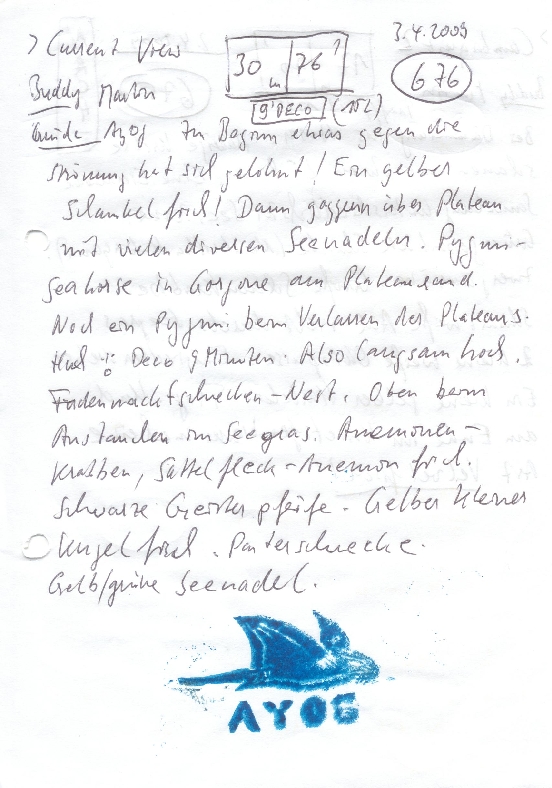 > Current View
3.4.2009
30 m | 76'
676
9' DECO (15L)
Buddy Martin
Guide Ayos Zu Beginn etwas gegen die
Strömung hat sich gelohnt! Ein gelber
Schaukelfisch! Dann gaggern über Plateau
mit vielen diversen Seenadeln. Pygmi-
Seahorse in Gorgone am Plateaurand.
Noch ein Pygmi beim Verlassen des Plateaus.
Huch :o Deco 9 Minuten. Also langsam hoch.
Fadennacktschnecken-Nest. Oben beim
Austauchen im Seegras. Anemonen-
krabben, Sattelfleck-Anemonfisch.
Schwarze Geisterpfeife. Gelber kleiner
Kugelfisch. Panterschnecke.
Gelb/grüne Seenadel.
AYOS